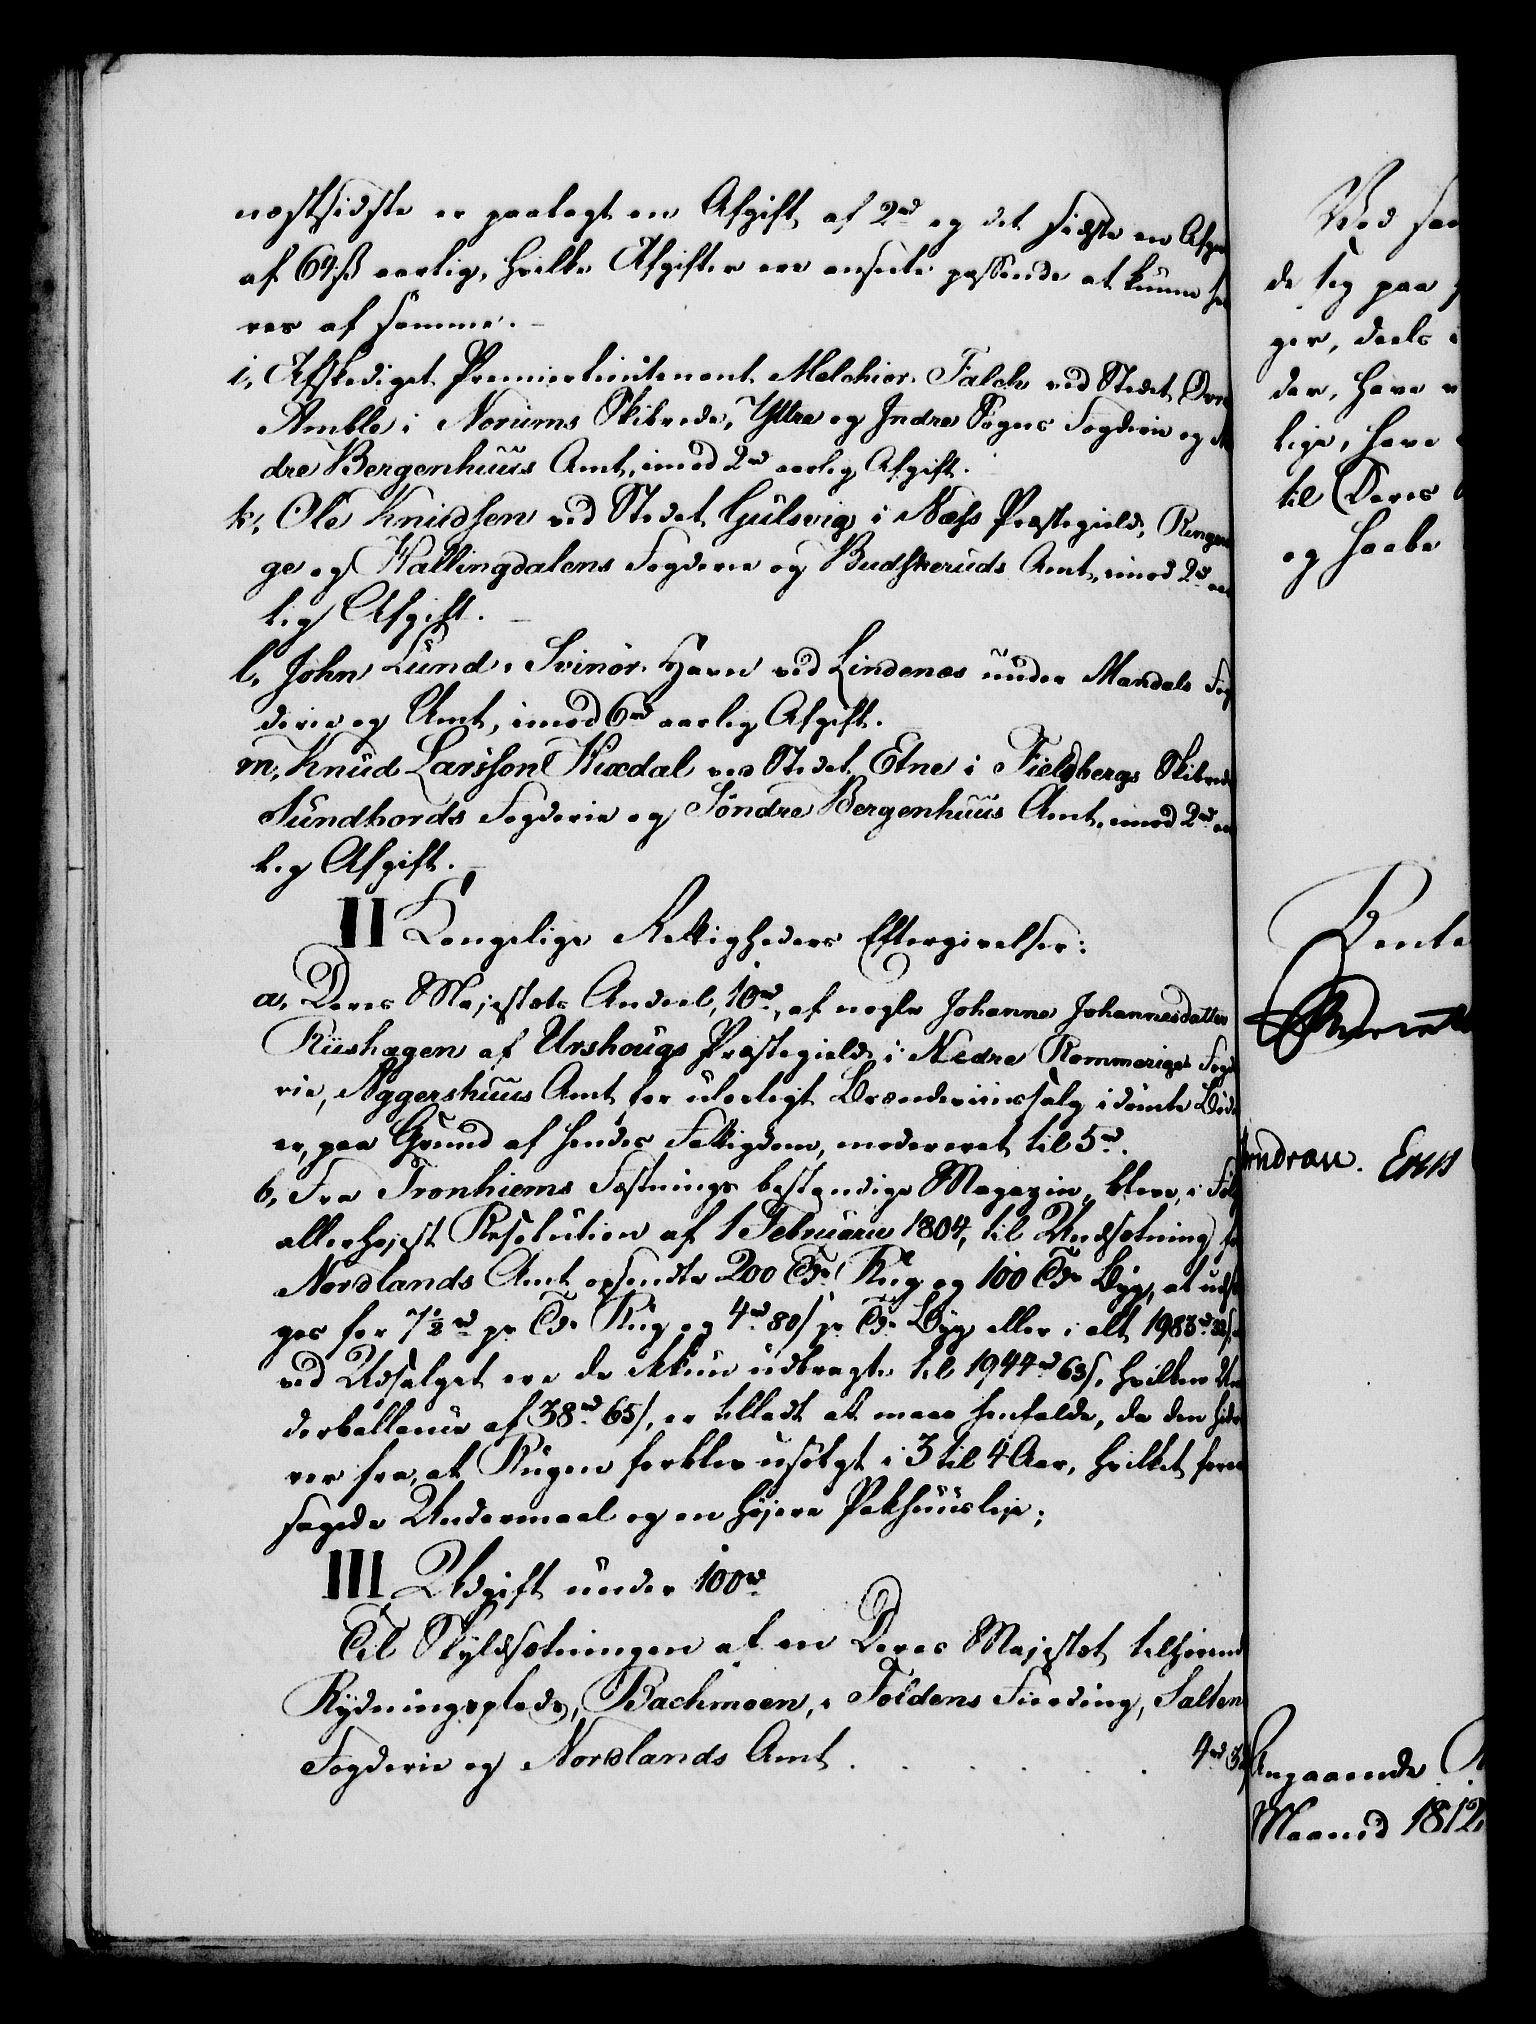 næstsidste er paalagt en Afgift af 2rd og det sidste en Afgi
af 64 ß aarlig, hvilke Afgifter ere ansete passende at kunne
res af samme.
i, Afskediget Premierlieutenant Melchior Falch ved Stedet Øvre
Amble i Norums Skibrede, Yttre og Indre Sogns Fogderie og
dre Bergenhuus Amt, imod 2rd aarlig Afgift.
k, Ole Knudsen ved Stedet Gulsvig i Næss Præstegield, Ringeri
ge og Hallingdalens Fogderie og Budskeruds Amt, imod 2rd aar
lig Afgift.
l, John Lund, Svinör Havn ved Lindenæs under Mandals Fog
derie og Amt, imod 6rd aarlig Afgift.
m, Knud Larsson Hixdal ved Stedet Etne i Fieldbergs Skibrede
Sundhords Fogderie og Söndre Bergenhuus Amt, imod 2rd aar
lig Afgift.
II Kongelige Rettigheders Eftergivelser:
a, Deres Majestæts Andeel, 10rd, af nogle Johanne Johannesdatter
Riishagen af Urshougs Præstegield i Nedre Rommerige Fogde
rie, Aggershuus Amt for ulovligt Brændeviinssalg idömte Böder
er, paa Grund af hendes Fattigdom, modereret til 5rd.
b, Fra Tronhiems Fæstnings bestandige Magazin, bleve, i Fölge
allerhöjest Resolution af 1 Februarii 1804, til Undsætning for
Nordlands Amt opsendte 200 Tdr Rug og 100 Tdr Byg, at udsæl
ges for 7½rd pr Tde Rug og 4rd 80 s pr Tde Byg eller i alt 1983rd 32 s,
ved Udsalget ere de ikkun udbragte til 1944rd 63 s, hvilken Un
derballance af 38rd 65 s, er tilladt at maae henfalde, da den hidrö
rer fra, at Rugen forblev usolgt i 3 til 4 Aar, hvilket foraar
sagede Undermaal og en höjere Pakhuusleje;
III Udgift under 100rd
Til Skyldsætningen af en Deres Majestæt tilhörende
Rydningsplads, Bachmoen, i Foldens Fierding, Saltens
Fogderie og Nordlands Amt . . . . . . 4rd 3
Ved
de sig paa
ger, deels
der, have
lige, have
til Deres
og haabe
Rente
ndrau. Ens
Angaaende
Maaned 1812